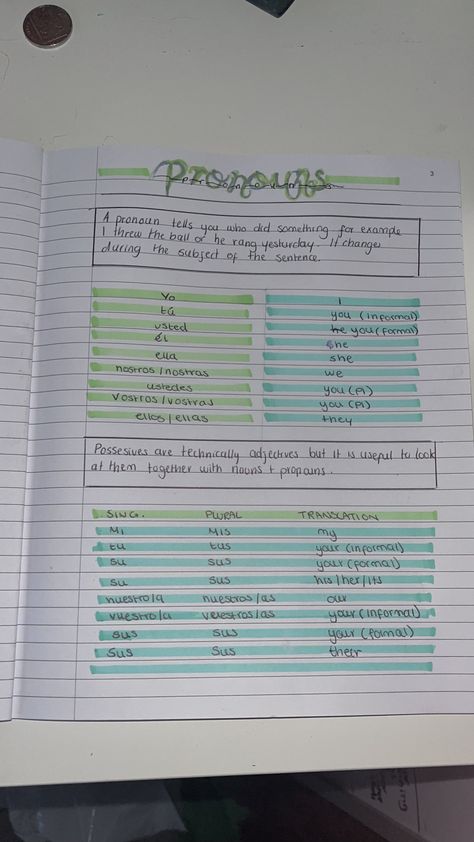 pronouns
3
A pronoun tells you who did something for example
I threw the ball or he rang yesturday. It changes
during the subject of the sentence.
Yo I
tú you (informal)
usted he you (formal)
él she
ella she
nostros/nostras we
ustedes you (Pl)
Vostros/vostras you (Pl)
ellos/ellas they
Possesives are technically adjectives but it is useful to look
at them together with nouns + pronouns.
SING. PLURAL TRANSLATION
Mi Mis my
tu tus your (informal)
su sus your (formal)
su sus his/her/its
nuestro/a nuestros/as our
vuestro/a veustros/as your (informal)
sus sus your (formal)
sus sus their